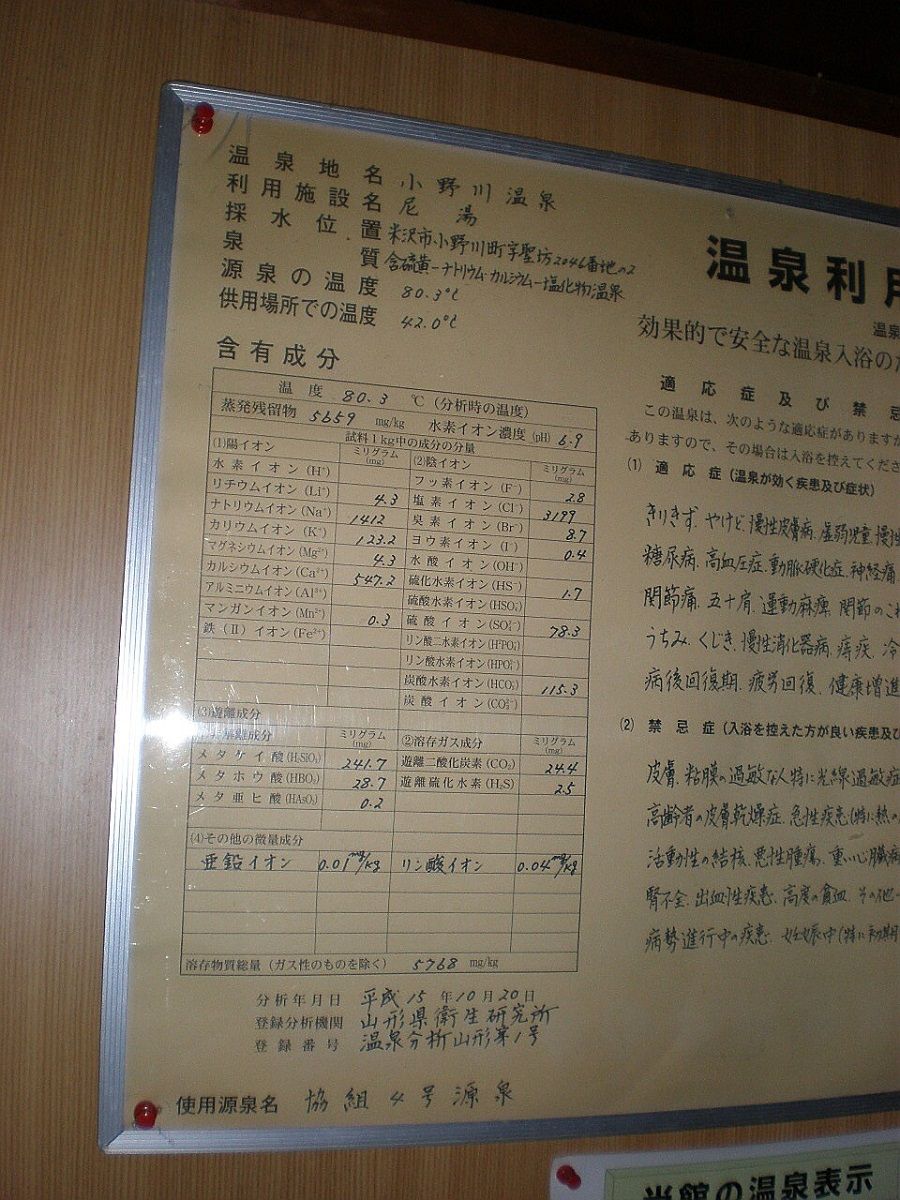 温泉地名 小野川温泉
利用施設名 尼湯
採水位置 米沢市小野川町字聖坊2046番地の2
泉質 含硫黄-ナトリウム・カルシウム-塩化物温泉
源泉の温度 80.3℃
供用場所での温度 42.0℃
含有成分
温度 80.3 ℃(分析時の温度)
蒸発残留物 5659 mg/kg 水素イオン濃度(pH) 6.9
試料1kg中の成分の分量
(1)陽イオン ミリグラム(mg) (2)陰イオン ミリグラム(mg)
水素イオン(H⁺) フッ素イオン(F⁻) 2.8
リチウムイオン(Li⁺) 4.3 塩素イオン(Cl⁻) 3199
ナトリウムイオン(Na⁺) 1412 臭素イオン(Br⁻) 8.7
カリウムイオン(K⁺) 123.2 ヨウ素イオン(I⁻) 0.4
マグネシウムイオン(Mg²⁺) 4.3 水酸イオン(OH⁻)
カルシウムイオン(Ca²⁺) 547.2 硫化水素イオン(HS⁻) 1.7
アルミニウムイオン(Al³⁺) 硫酸水素イオン(HSO₄⁻)
マンガンイオン(Mn²⁺) 0.3 硫酸イオン(SO₄²⁻) 78.3
鉄(II)イオン(Fe²⁺) リン酸二水素イオン(H²PO₄⁻)
リン酸水素イオン(HPO₄²⁻)
炭酸水素イオン(HCO₃⁻) 115.3
炭酸イオン(CO₃²⁻)
(3)遊離成分
解離成分 ミリグラム(mg) ②溶存ガス成分 ミリグラム(mg)
メタケイ酸(H₂SiO₃) 241.7 遊離二酸化炭素(CO₂) 24.4
メタホウ酸(HBO₂) 28.7 遊離硫化水素(H₂S) 2.5
メタ亜ヒ酸(HAsO₂) 0.2
(4)その他の微量成分
亜鉛イオン 0.01mg/kg リン酸イオン 0.04mg/kg
溶存物質総量(ガス性のものを除く) 5768 mg/kg
分析年月日 平成15年10月20日
登録分析機関 山形県衛生研究所
登録番号 温泉分析山形第1号
使用源泉名 協組4号源泉
温泉利用
温泉
効果的で安全な温泉入浴のた
適応症及び禁忌
この温泉は、次のような適応症がありますが
ありますので、その場合は入浴を控えてくださ
(1) 適応症(温泉が効く疾患及び症状)
きりきず、やけど、慢性皮膚病、虚弱児童、慢性
糖尿病、高血圧症、動脈硬化症、神経痛
関節痛、五十肩、運動麻痺、関節のこわ
うちみ、くじき、慢性消化器病、痔疾、冷
病後回復期、疲労回復、健康増進
(2) 禁忌症(入浴を控えた方が良い疾患及び
皮膚、粘膜の過敏な人特に光線過敏症
高齢者の皮膚乾燥症、急性疾患(特に熱の
活動性の結核、悪性腫瘍、重い心臓病
腎不全、出血性疾患、高度の貧血、その他
病勢進行中の疾患、妊娠中(特に初期
当館の温泉表示